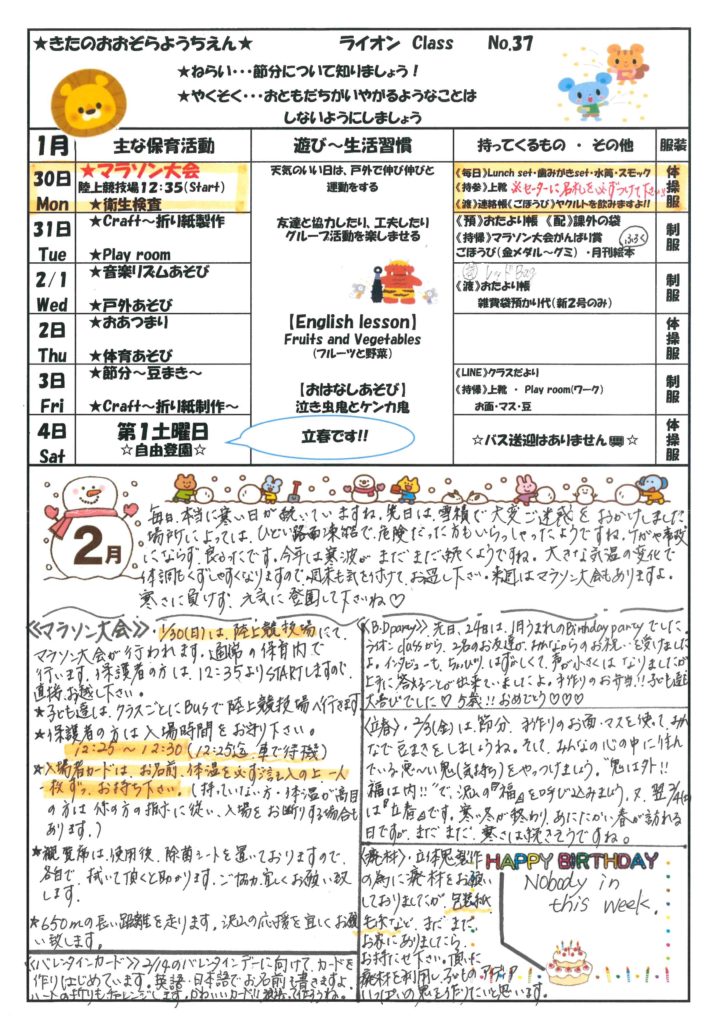 ★きたのおおぞらようちえん★ ライオン Class No.37
★ねらい・・・節分について知りましょう！
★やくそく・・・おともだちがいやがるようなことは
しないようにしましょう
1月 主な保育活動 遊び～生活習慣 持ってくるもの ・ その他 服装
30日 Mon
★マラソン大会
陸上競技場12：35(Start)
★衛生検査
天気のいい日は、戸外で伸び伸びと
運動をする
《毎日》Lunch set・歯みがきset・水筒・スモック
《持参》上靴 ※セーターに名札を必ずつけて下さい
《渡》連絡帳《ごほうび》ヤクルトを飲みますよ!!
体操服
31日 Tue
★Craft～折り紙製作
★Play room
友達と協力したり、工夫したり
グループ活動を楽しませる
《預》おたより帳 《配》課外の袋
《持帰》マラソン大会がんばり賞
ごほうび(金メダル～グミ) ・月刊絵本 ふろく
制服
2/1 Wed
★音楽リズムあそび
★戸外あそび
レッドBag
《渡》おたより帳
雑費袋預かり代(新2号のみ)
制服
2日 Thu
★おあつまり
★体育あそび
【English lesson】
Fruits and Vegetables
(フルーツと野菜)
体操服
3日 Fri
★節分～豆まき～
★Craft～折り紙制作～
【おはなしあそび】
泣き虫鬼とケンカ鬼
《LINE》クラスだより
《持帰》上靴 ・ Play room(ワーク)
お面・マス・豆
制服
4日 Sat
第1土曜日
☆自由登園☆
立春です!!
☆バス送迎はありません☆
体操服
2月
毎日、本当に寒い日が続いていますね。先日は、雪積で大変ご迷惑をおかけしました。
場所によっては、ひどい路面凍結で、危険だった方もいらっしゃったようですね。ケガや事故
にならず、良かったです。今年は寒波がまだまだ続くようですね。大きな気温の変化で
体調もくずしやすくなりますので、週末も気を付けてお過し下さい。来週はマラソン大会もありますよ。
寒さに負けず、元気に登園して下さいね♡
《マラソン大会》・1/30(月)は、陸上競技場にて、
マラソン大会が行われます。通常の保育内で
行います。保護者の方は、12:35よりSTARTしますので、
直接お越し下さい。
★子ども達は、クラスごとにBusで陸上競技場へ行きます。
★保護者の方は入場時間をお守り下さい。
12:25～12:30 (12:25迄、車で待機)
★入場者カードは、お名前、体温を必ず記入の上一人
一枚ずつ、お持ち下さい。(持っていない方・体温が高目
の方は係の方の指示に従い、入場をお断りする場合も
あります。)
★観覧席は、使用後、除菌シートを置いておりますので、
各自で、拭いて頂くと助かります。ご協力、宜しくお願い致
します。
★650mの長い距離を走ります。沢山の応援を宜しくお願
い致します。
《バレンタインカード》2/14のバレンタインデーに向けて、カードを
作りはじめています。英語・日本語でお名前を書きますよ。
ハートの折りもチャレンジします。かわいいカード!!
《B・D party》、先日、24日は、1月うまれのBirthday partyでした。
ライオンclassから、2名のお友達が、みんなからのお祝いを受けました
よ。インタビューでも、ちょっぴり、はずかしくて、声が小さくはなりましたが、
上手に答えることが出来ていましたよ。手作りのお弁当!!子ども達も
大喜びでした♡5歳!!おめでとう♡♡♡
《立春》・2/3(金)は、節分、手作りのお面、マスを使って、みん
なで豆まきをしましょうね。そして、みんなの心の中に住ん
でいる悪～い鬼(気持ち)をやっつけましょう。“鬼は外!!
福は内!!”で、沢山の『福』を呼び込みましょう。又、翌2/4(土)
は『立春』です。寒い冬が終わり、あたたかい春が訪れる
日ですが、まだまだ、寒さは続きそうですね。
《廃材》・立体思製作
の為に廃材をお願い
しておりましたが、包装紙
も糸など、まだまだ、
お家にありましたら、
お持ちだせ下さい。頂いた
廃材を利用し、アイデア
いっぱいの鬼を作りたいと思います。
HAPPY BIRTHDAY
Nobody in
this week.